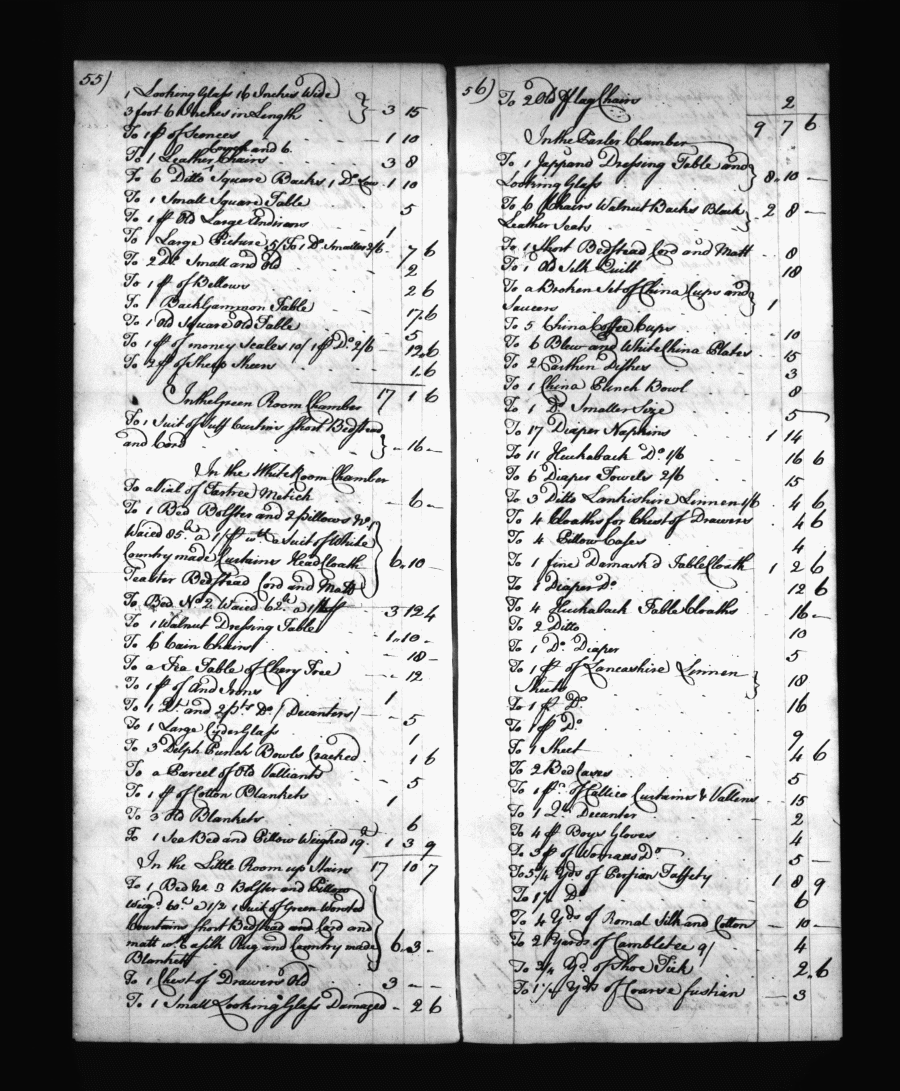 55)
1 Looking Glass 16 Inches Wide
3 foot 6 Inches in Length 3 15
To 1 pr of Sconces 1 10
To 1 Leather Chairs and 6 3 8
To 6 Ditto Square Backs, 1 Do Low 1 10
To 1 Small Square Table 5
To 1 pr Old Large Andirons 1
To 1 Large Picture 5/ To 1 Do Smaller 2/6 7 6
To 2 Do Small and Old 2
To 1 pr of Bellows 2 6
To 1 Back Gammon Table 17 6
To 1 Old Square Old Table 5
To 1 pr of money Scales 10/ 1 pr Do 2/6 12 6
To 2 pr of Sheep Shears 1 6
17 1 6
In the Green Room Chamber
To 1 Suit of Curtins Short Bedstead
and Cord 16
In the White Room Chamber
To a Vial of Tartree Metick 6
To 1 Bed Bolster and 2 pillows No 1
Waied 85 lb a 1/ wth a Suit of White
Country made Curtains Head Cloath
Teaster Bedstead Cord and Matt 6 10
To Bed No 2 Waied 62 lb a 3 12 4
To 1 Walnut Dressing Table 1 10
To 6 Cain Chairs 18
To a Tea Table of Chery Tree 12
To 1 pr of And Irons 1
To 1 Qt and 2 pts Do (Decanters) 5
To 1 Large Cyder Glass 1
To 3 Delph Punch Bowls Cracked 1 6
To a Parcel of Old Valliants 5
To 1 pr of Cotton Blankets 1
To 3 Old Blankets 6
To 1 Sea Bed and Pillow Weighed 19 1 3 9
In the Little Room up Stairs 17 10 7
To 1 Bed No 3 Bolster and Pillow
Weigd a 1/2 1 Suit of Green Worsted
Courtains Short Bedstead and Cord and
matt wth a silk Rug and Country made
Blankett 6 3
To 1 Chest of Drawers Old 3
To 1 Small Looking Glass Damaged 2 6
56)
To 2 Old Flag Chairs 2
9 7 6
In the Parler Chamber
To 1 Jappand Dressing Table and
Looking Glass 8 10
To 6 Chairs Walnut Backs Black
Leather Seats 2 8
To 1 Short Bedstead Cord and Matt 8
To 1 Old Silk Quilt 18
To a Broken Set of China Cups and
Saucers 1
To 5 China Coffee Cups 10
To 6 Blew and White China Plates 15
To 2 Earthen Dishes 3
To 1 China Punch Bowl 8
To 1 Do Smaller Size 5
To 17 Diaper Napkins 1 14
To 11 Huckaback Do 1/6 16 6
To 6 Diaper Towels 2/6 15
To 3 Ditto Lankishire Linnen 1/6 4 6
To 4 Cloaths for Chest of Drawers 4 6
To 4 Pillow Cases 4
To 1 fine Damask'd Table Cloath 1 2 6
To 1 Diaper Do 12 6
To 4 Huckaback Table Cloaths 16
To 2 Ditto 10
To 1 Do Diaper 5
To 1 pr of Lancashire Linnen
Sheets 18
To 1 pr Do 16
To 1 pr Do 9
To 1 Sheet 4 6
To 2 Bed Cases 5
To 1 pr of Callico Curtains & Vallens 15
To 1 Qt Decanter 2
To 4 pr Boys Gloves 4
To 3 pr of Womans Do 5
To 5 1/4 Yds of Persian Taffety 1 8 9
To 1 1/2 Do 6
To 4 Yds of Romal Silk and Cotton 10
To 2 Yards of Cambletee 9/ 4
To 3/4 Yd of Shoe Tick 2 6
To 1 1/4 Yds of Coarse fustian 3